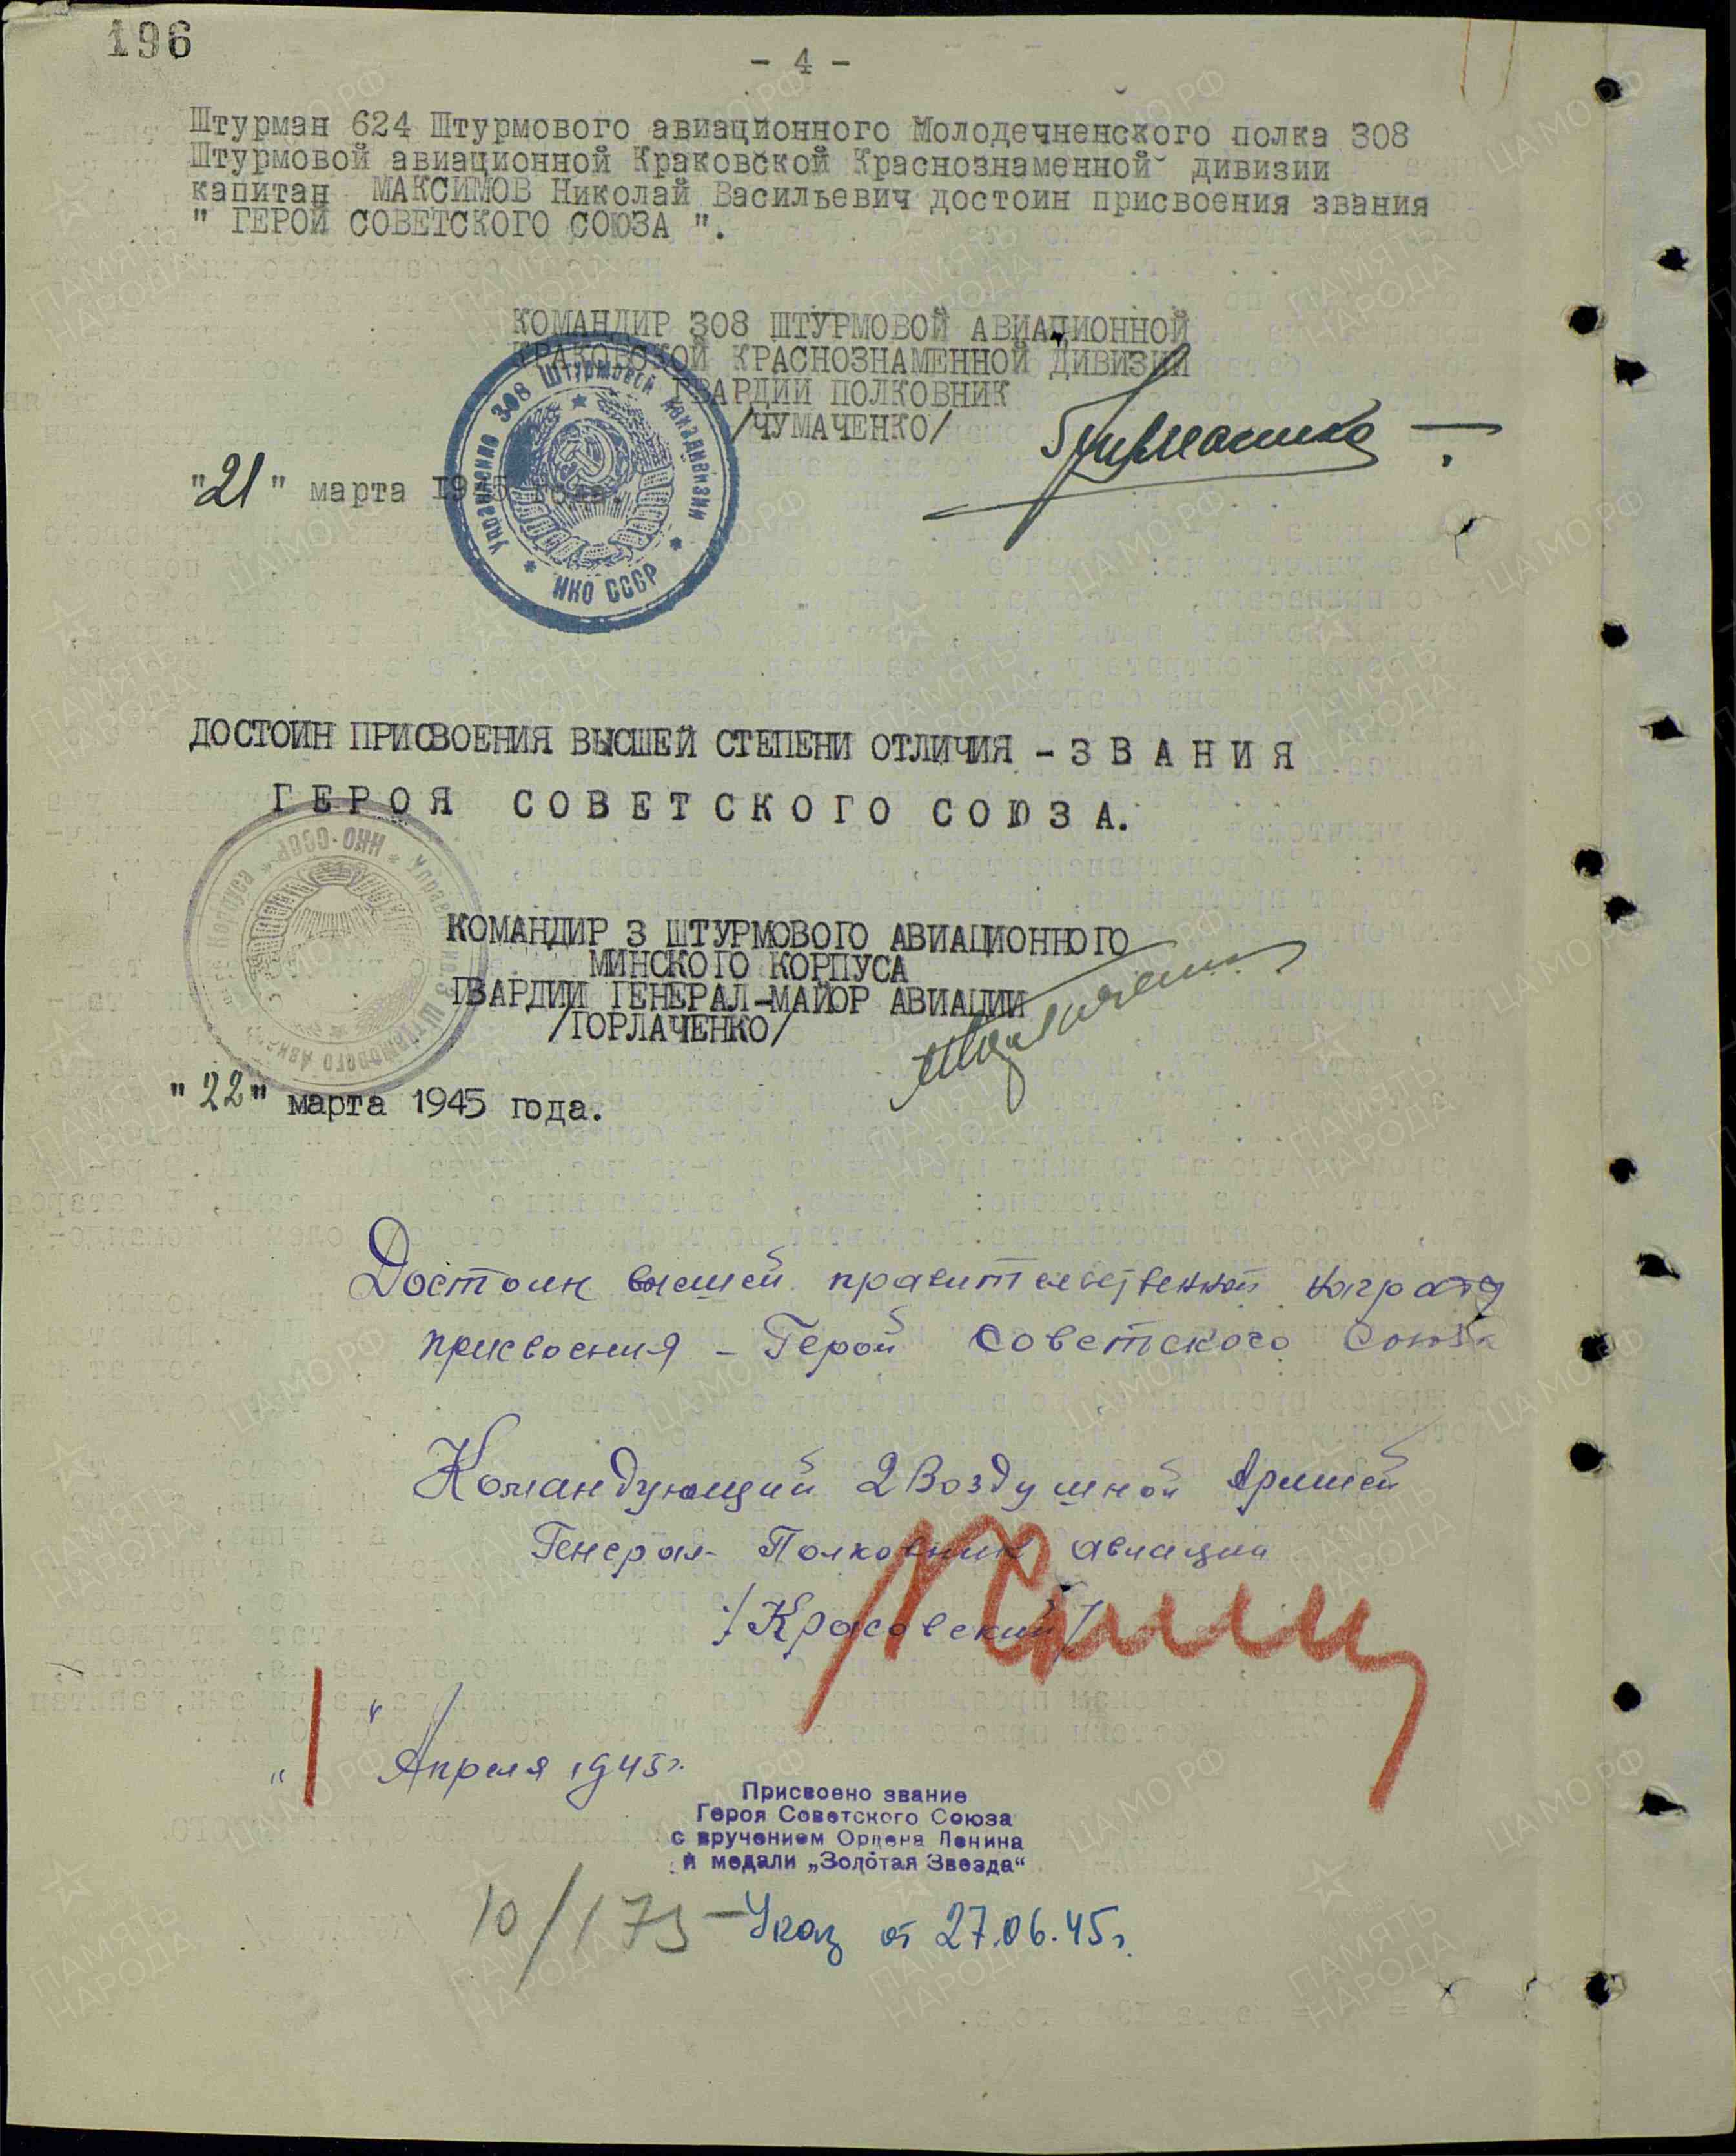 196
- 4 -
Штурман 624 Штурмового авиационного Молодечненского полка 308
Штурмовой авиационной Краковской Краснознаменной дивизии
капитан МАКСИМОВ Николай Васильевич достоин присвоения звания
" ГЕРОЙ СОВЕТСКОГО СОЮЗА ".
КОМАНДИР 308 ШТУРМОВОЙ АВИАЦИОННОЙ
КРАКОВСКОЙ КРАСНОЗНАМЕННОЙ ДИВИЗИИ
ГВАРДИИ ПОЛКОВНИК
/ЧУМАЧЕНКО/
"21" марта 1945 года.
Управление 308 Штурмовой Авиадивизии
НКО СССР
ДОСТОИН ПРИСВОЕНИЯ ВЫСШЕЙ СТЕПЕНИ ОТЛИЧИЯ - ЗВАНИЯ
ГЕРОЯ СОВЕТСКОГО СОЮЗА.
НКО·СССР
КОМАНДИР 3 ШТУРМОВОГО АВИАЦИОННОГО
МИНСКОГО КОРПУСА
ГВАРДИИ ГЕНЕРАЛ-МАЙОР АВИАЦИИ
/ГОРЛАЧЕНКО/
"22" марта 1945 года.
Достоин высшей правительственной награды
присвоения - Герой Советского Союза
Командующий 2 Воздушной Армией
Генерал-Полковник авиации
/Красовский/
"1" Апреля 1945г.
Присвоено звание
Героя Советского Союза
с вручением Ордена Ленина
и медали „Золотая Звезда“
10/173 - Указ от 27.06.45г.
ПАМЯТЬ НАРОДА
ЦА МО РФ